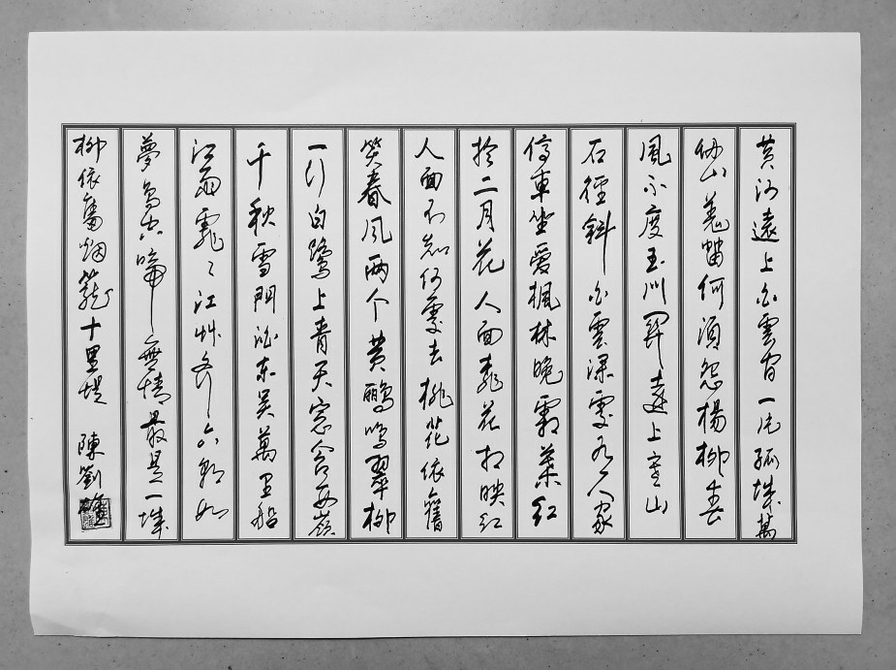 黃河遠上白雲間一片孤城萬
仞山羌笛何須怨楊柳春
風不度玉門關遠上寒山
石徑斜白雲深處有人家
停車坐愛楓林晚霜葉紅
於二月花人面桃花相映紅
人面不知何處去桃花依舊
笑春風兩个黃鸝鳴翠柳
一行白鷺上青天窗含西嶺
千秋雪門泊東吳萬里船
江雨霏〻江草齊六朝如
夢鳥空啼無情最是一城
柳依舊烟籠十里堤 陳劉